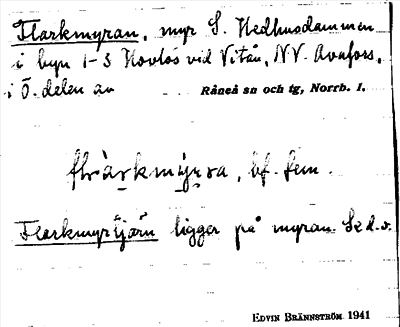 Flarkmyran, myr S. Hedhusdammen
i byn 1-3 Hovlös vid Vitån, N.V. Avafors,
i Ö. delen av Råneå sn och tg, Norrb. l.
bf. fem.
Flarkmyrtjärn ligger på myran. Se d.o.
EDVIN BRÄNNSTRÖM 1941